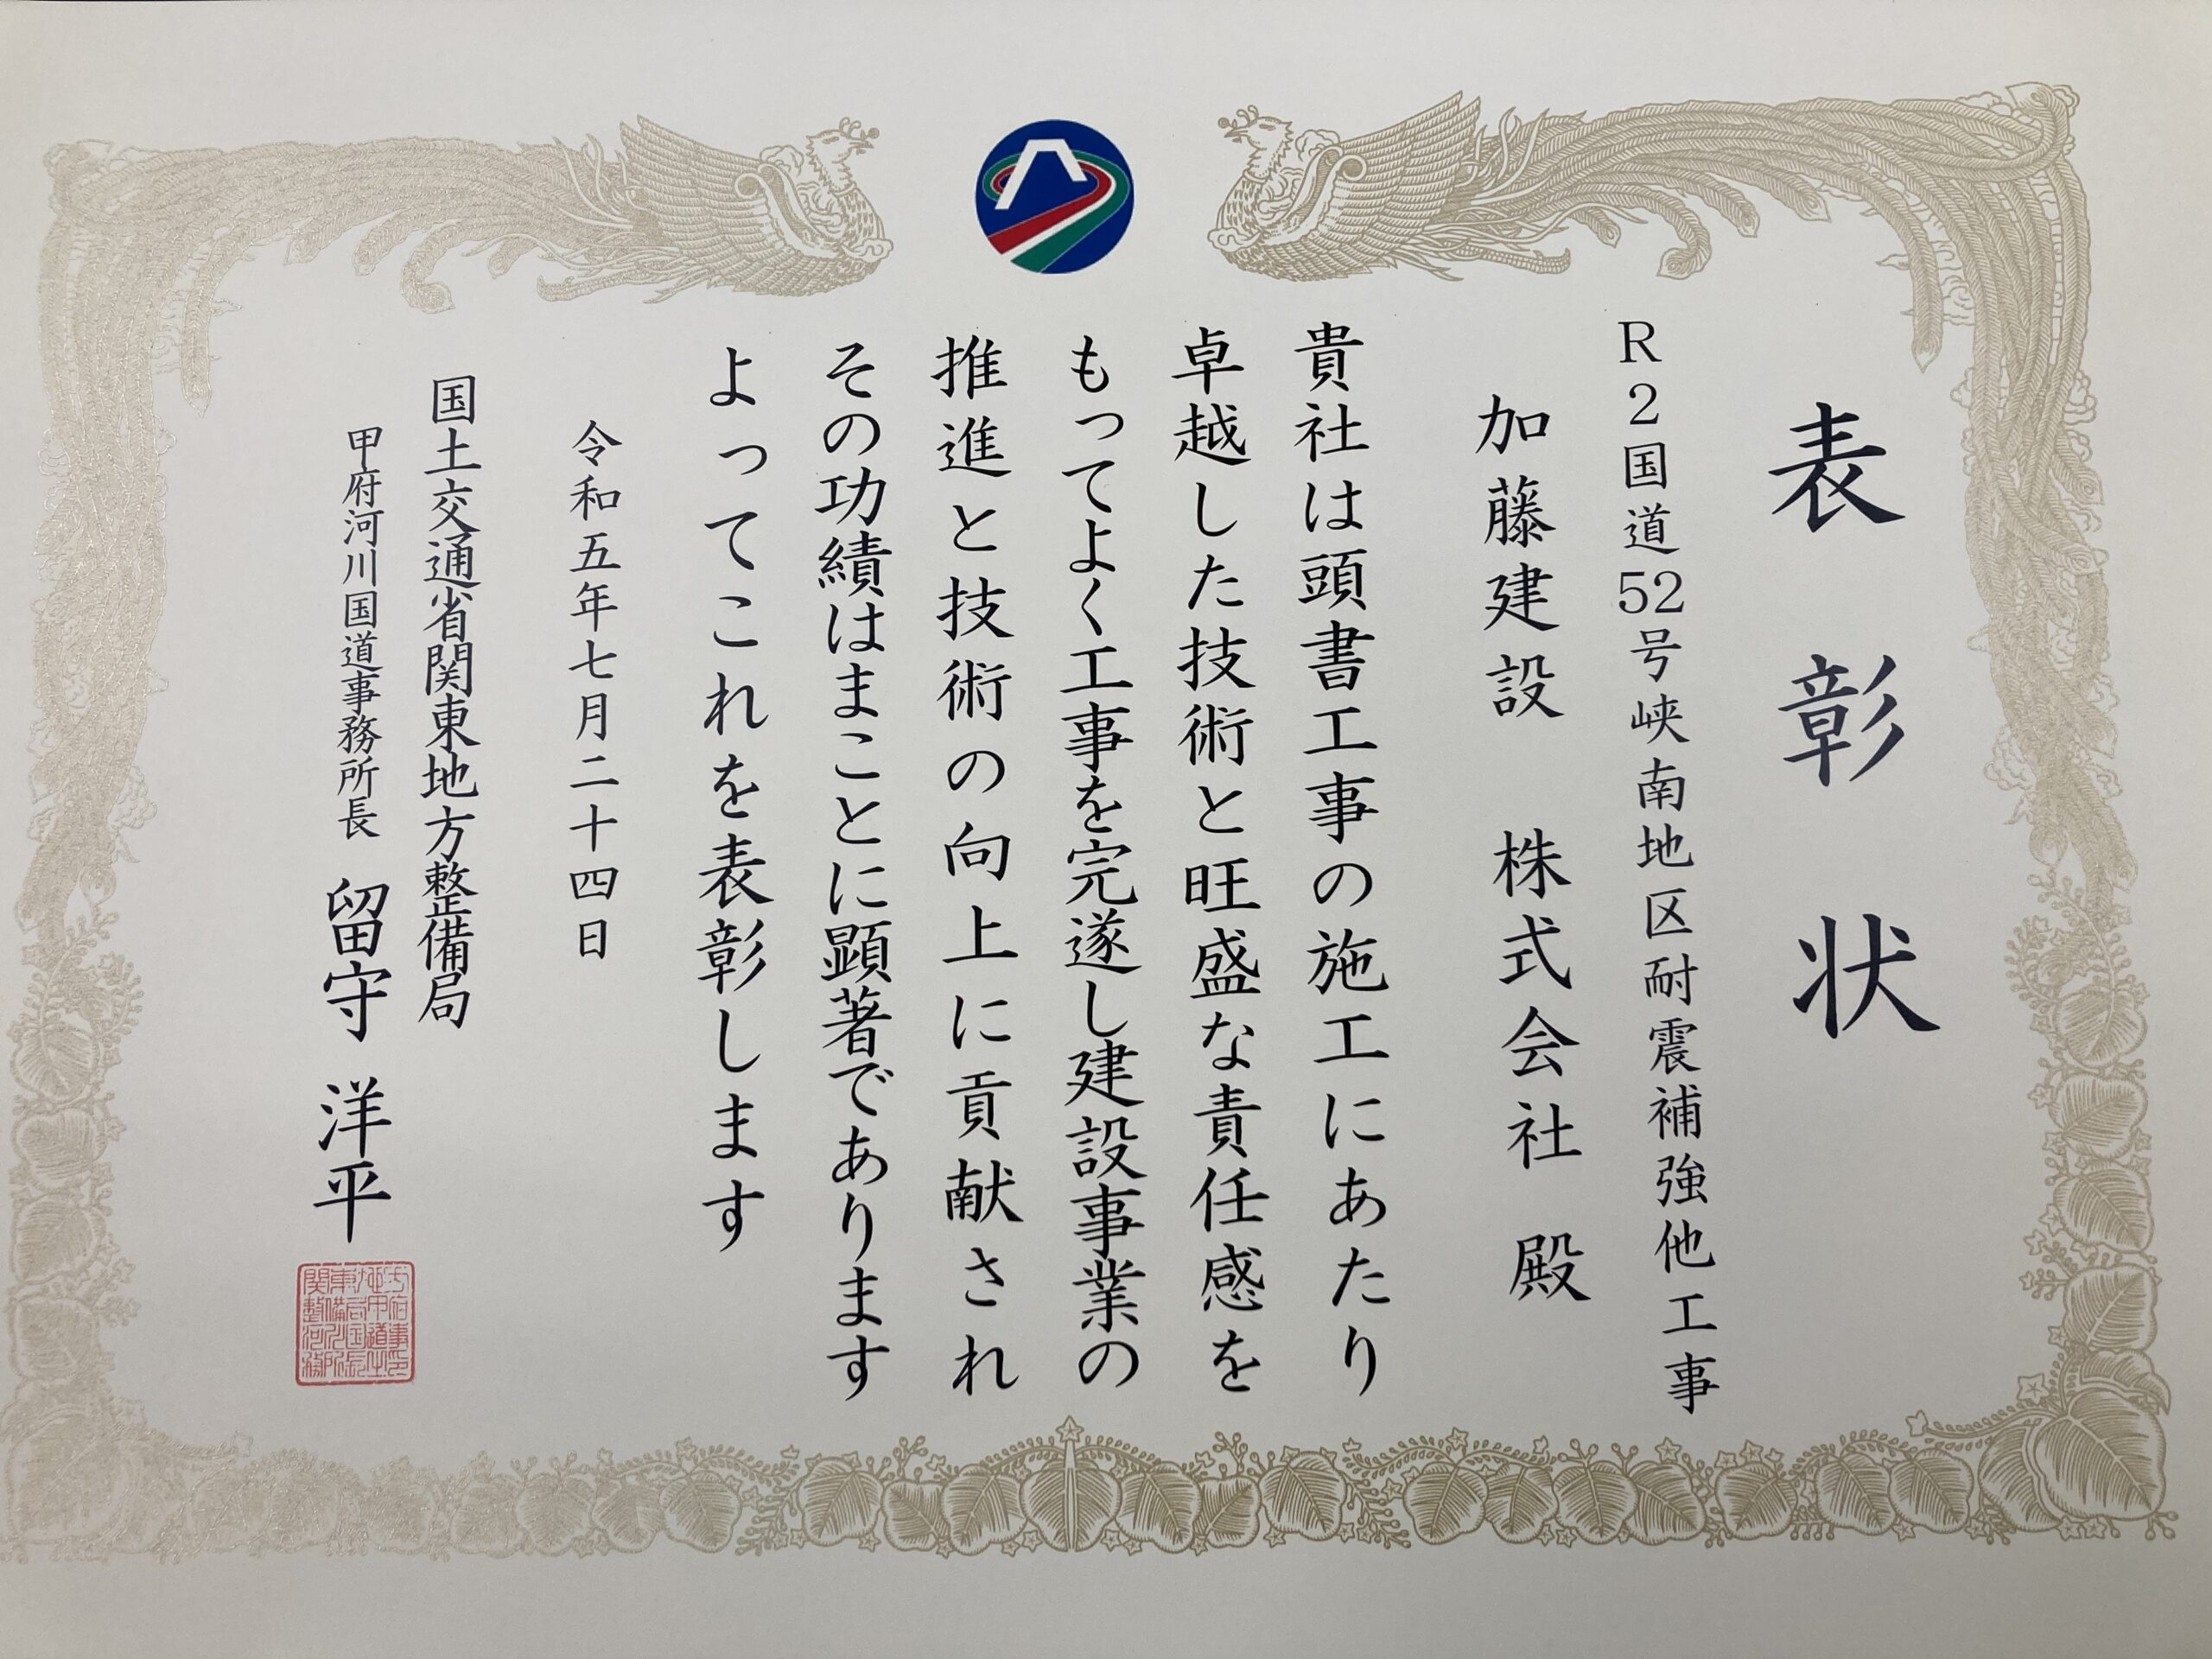 表彰状
R2国道52号峡南地区耐震補強他工事
加藤建設 株式会社 殿
貴社は頭書工事の施工にあたり
卓越した技術と旺盛な責任感を
もってよく工事を完遂し建設事業の
推進と技術の向上に貢献され
その功績はまことに顕著であります
よってこれを表彰します
令和五年七月二十四日
国土交通省関東地方整備局
甲府河川国道事務所長 留守 洋平